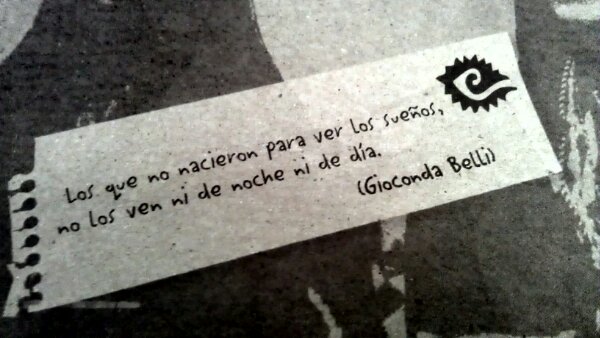 Los que no nacieron para ver los sueños,
no los ven ni de noche ni de día.
(Gioconda Belli)